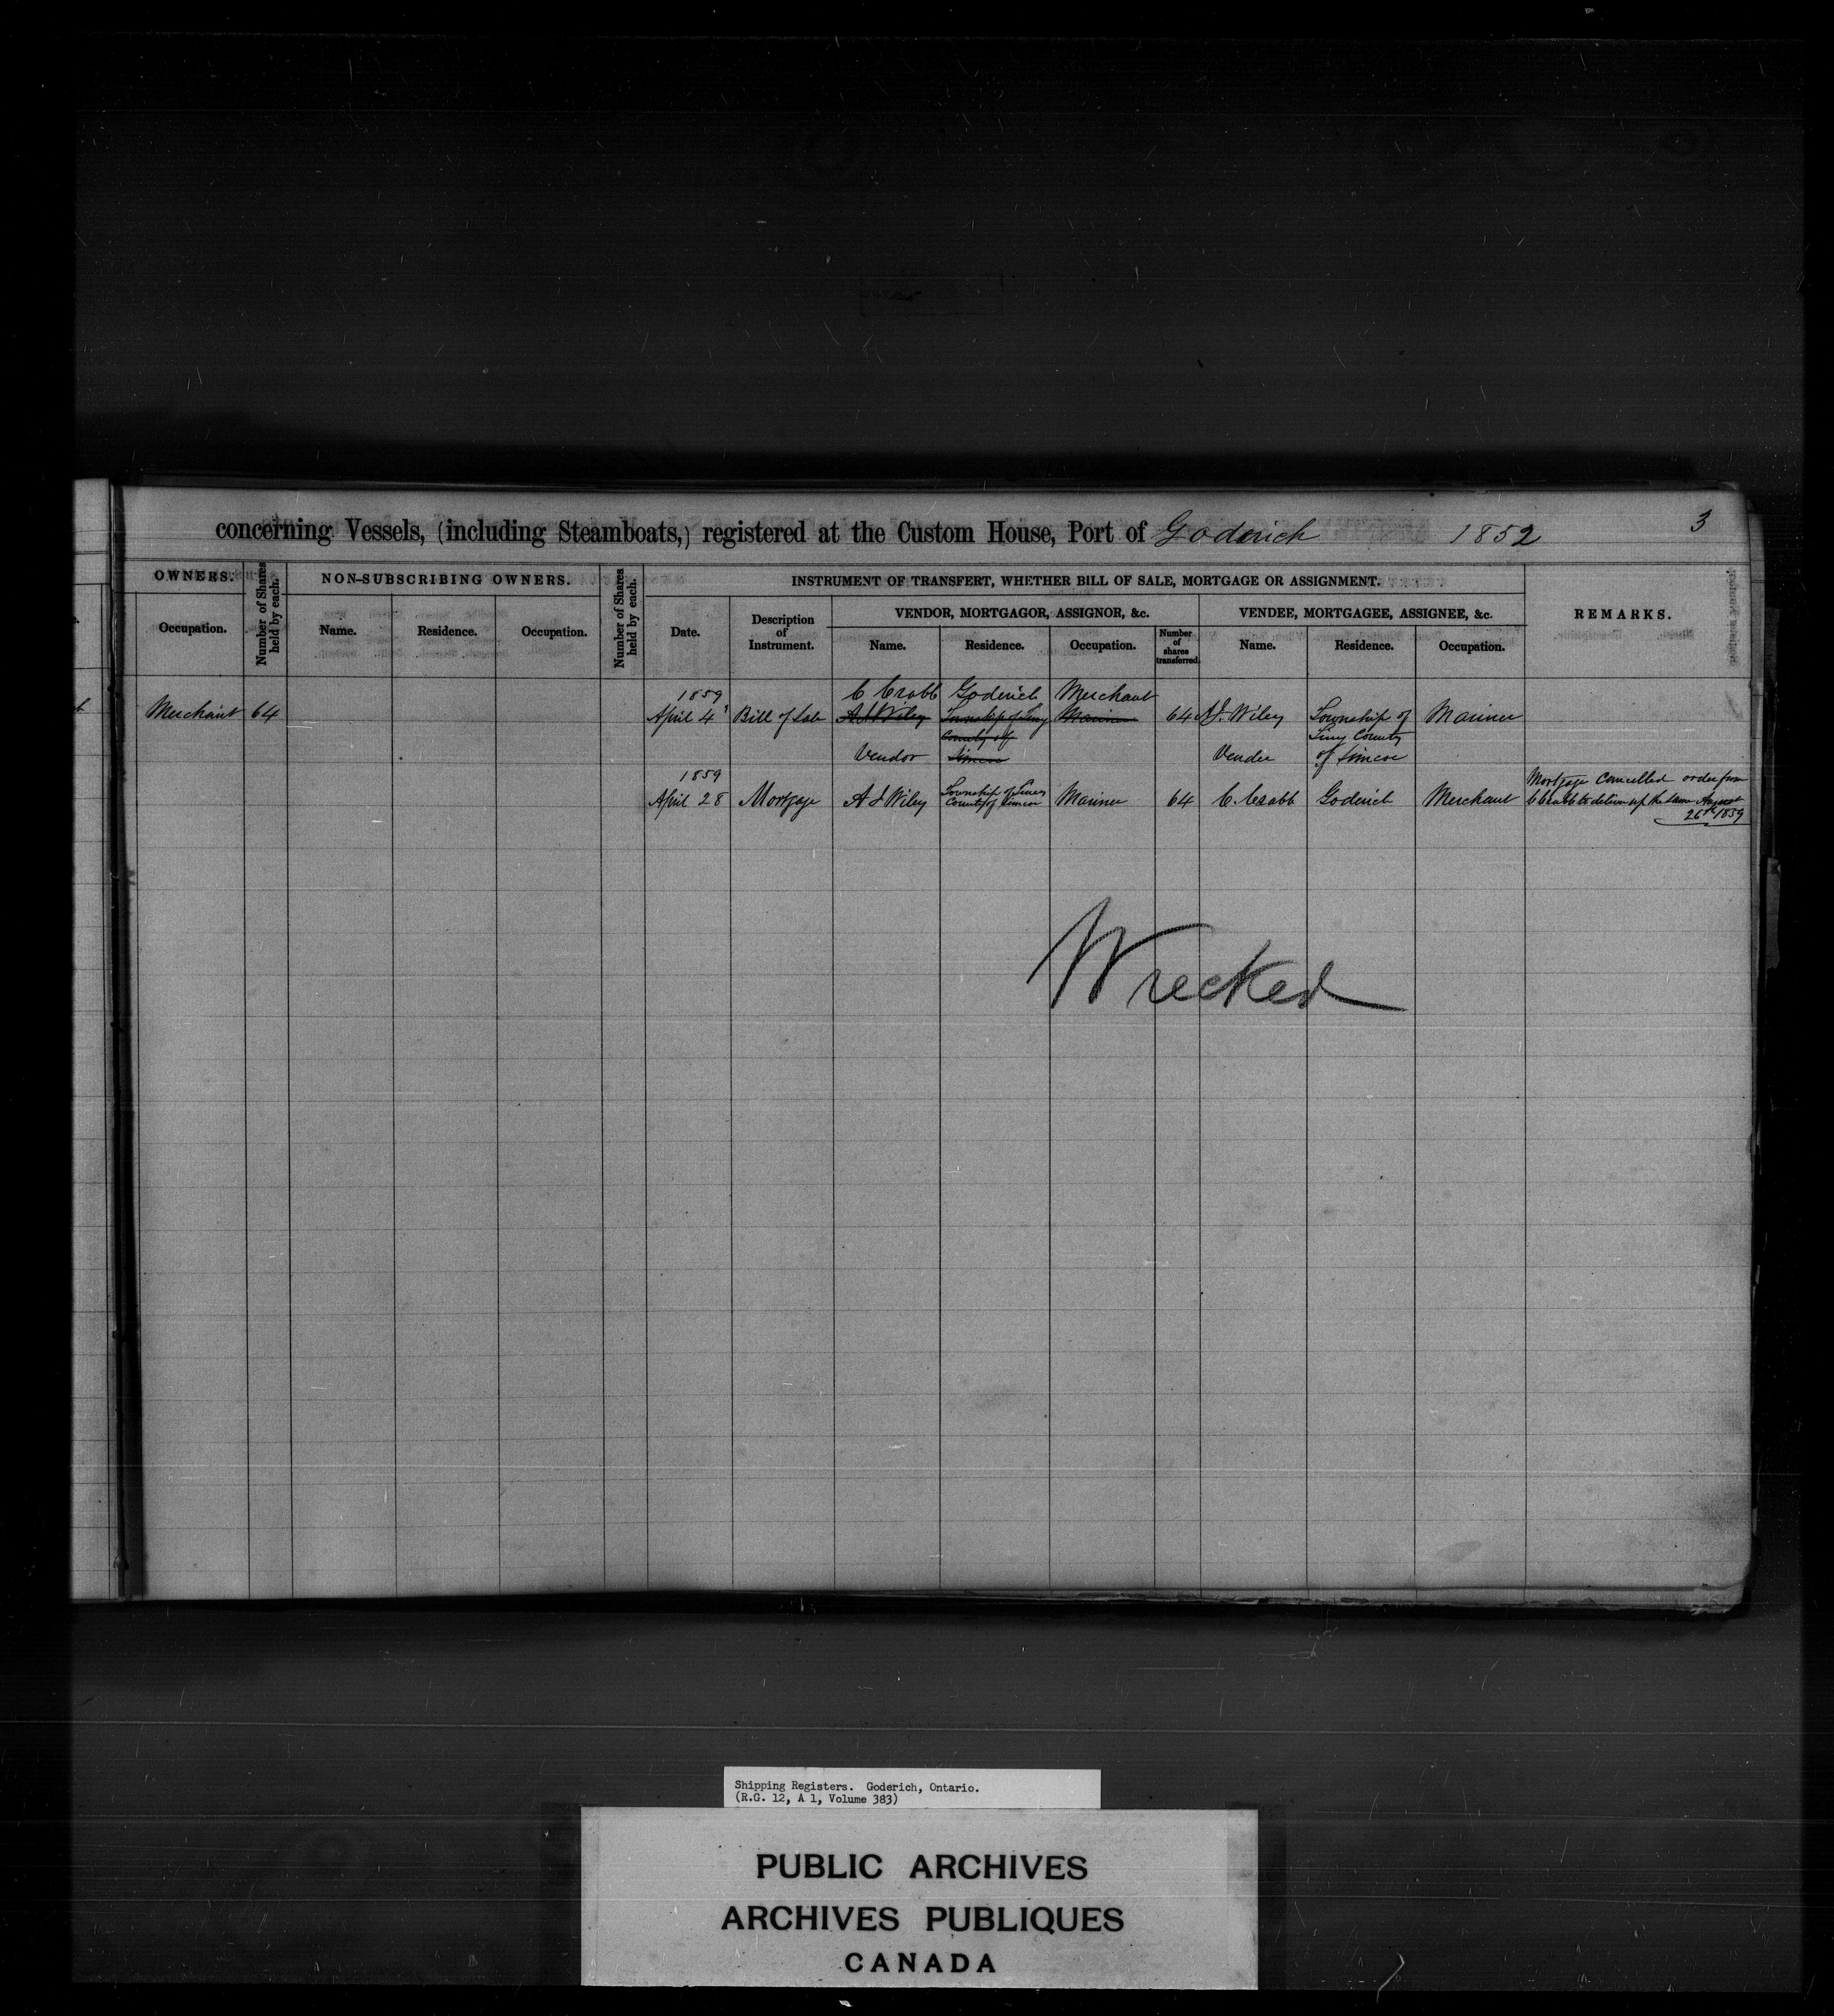 concerning Vessels, (including Steamboats,) registered at the Custom House, Port of Goderich 1852 3
OWNERS.
Number of Shares held by each.
NON-SUBSCRIBING OWNERS.
Number of Shares held by each.
INSTRUMENT OF TRANSFERT, WHETHER BILL OF SALE, MORTGAGE OR ASSIGNMENT.
REMARKS.
Occupation.
Name. Residence. Occupation.
Date.
Description of Instrument.
VENDOR, MORTGAGOR, ASSIGNOR, &c.
VENDEE, MORTGAGEE, ASSIGNEE, &c.
Name. Residence. Occupation.
Number of shares transferred.
Name. Residence. Occupation.
1859 C Crabb Goderich Merchant
Merchant 64 April 4 Bill of Sale A J Wiley Township of Tiny Mariner 64 A J. Wiley Township of Mariner
County of Tiny County
Vendor Simcoe Vendee of Simcoe
1859 Mortgage Cancelled order from
April 28 Mortgage A J Wiley Township of Tiny County of Simcoe Mariner 64 C. Crabb Goderich Merchant C Crabb to deliver up the same August
26th 1859
Wrecked
Shipping Registers. Goderich, Ontario.
(R.G. 12, A 1, Volume 383)
PUBLIC ARCHIVES
ARCHIVES PUBLIQUES
CANADA